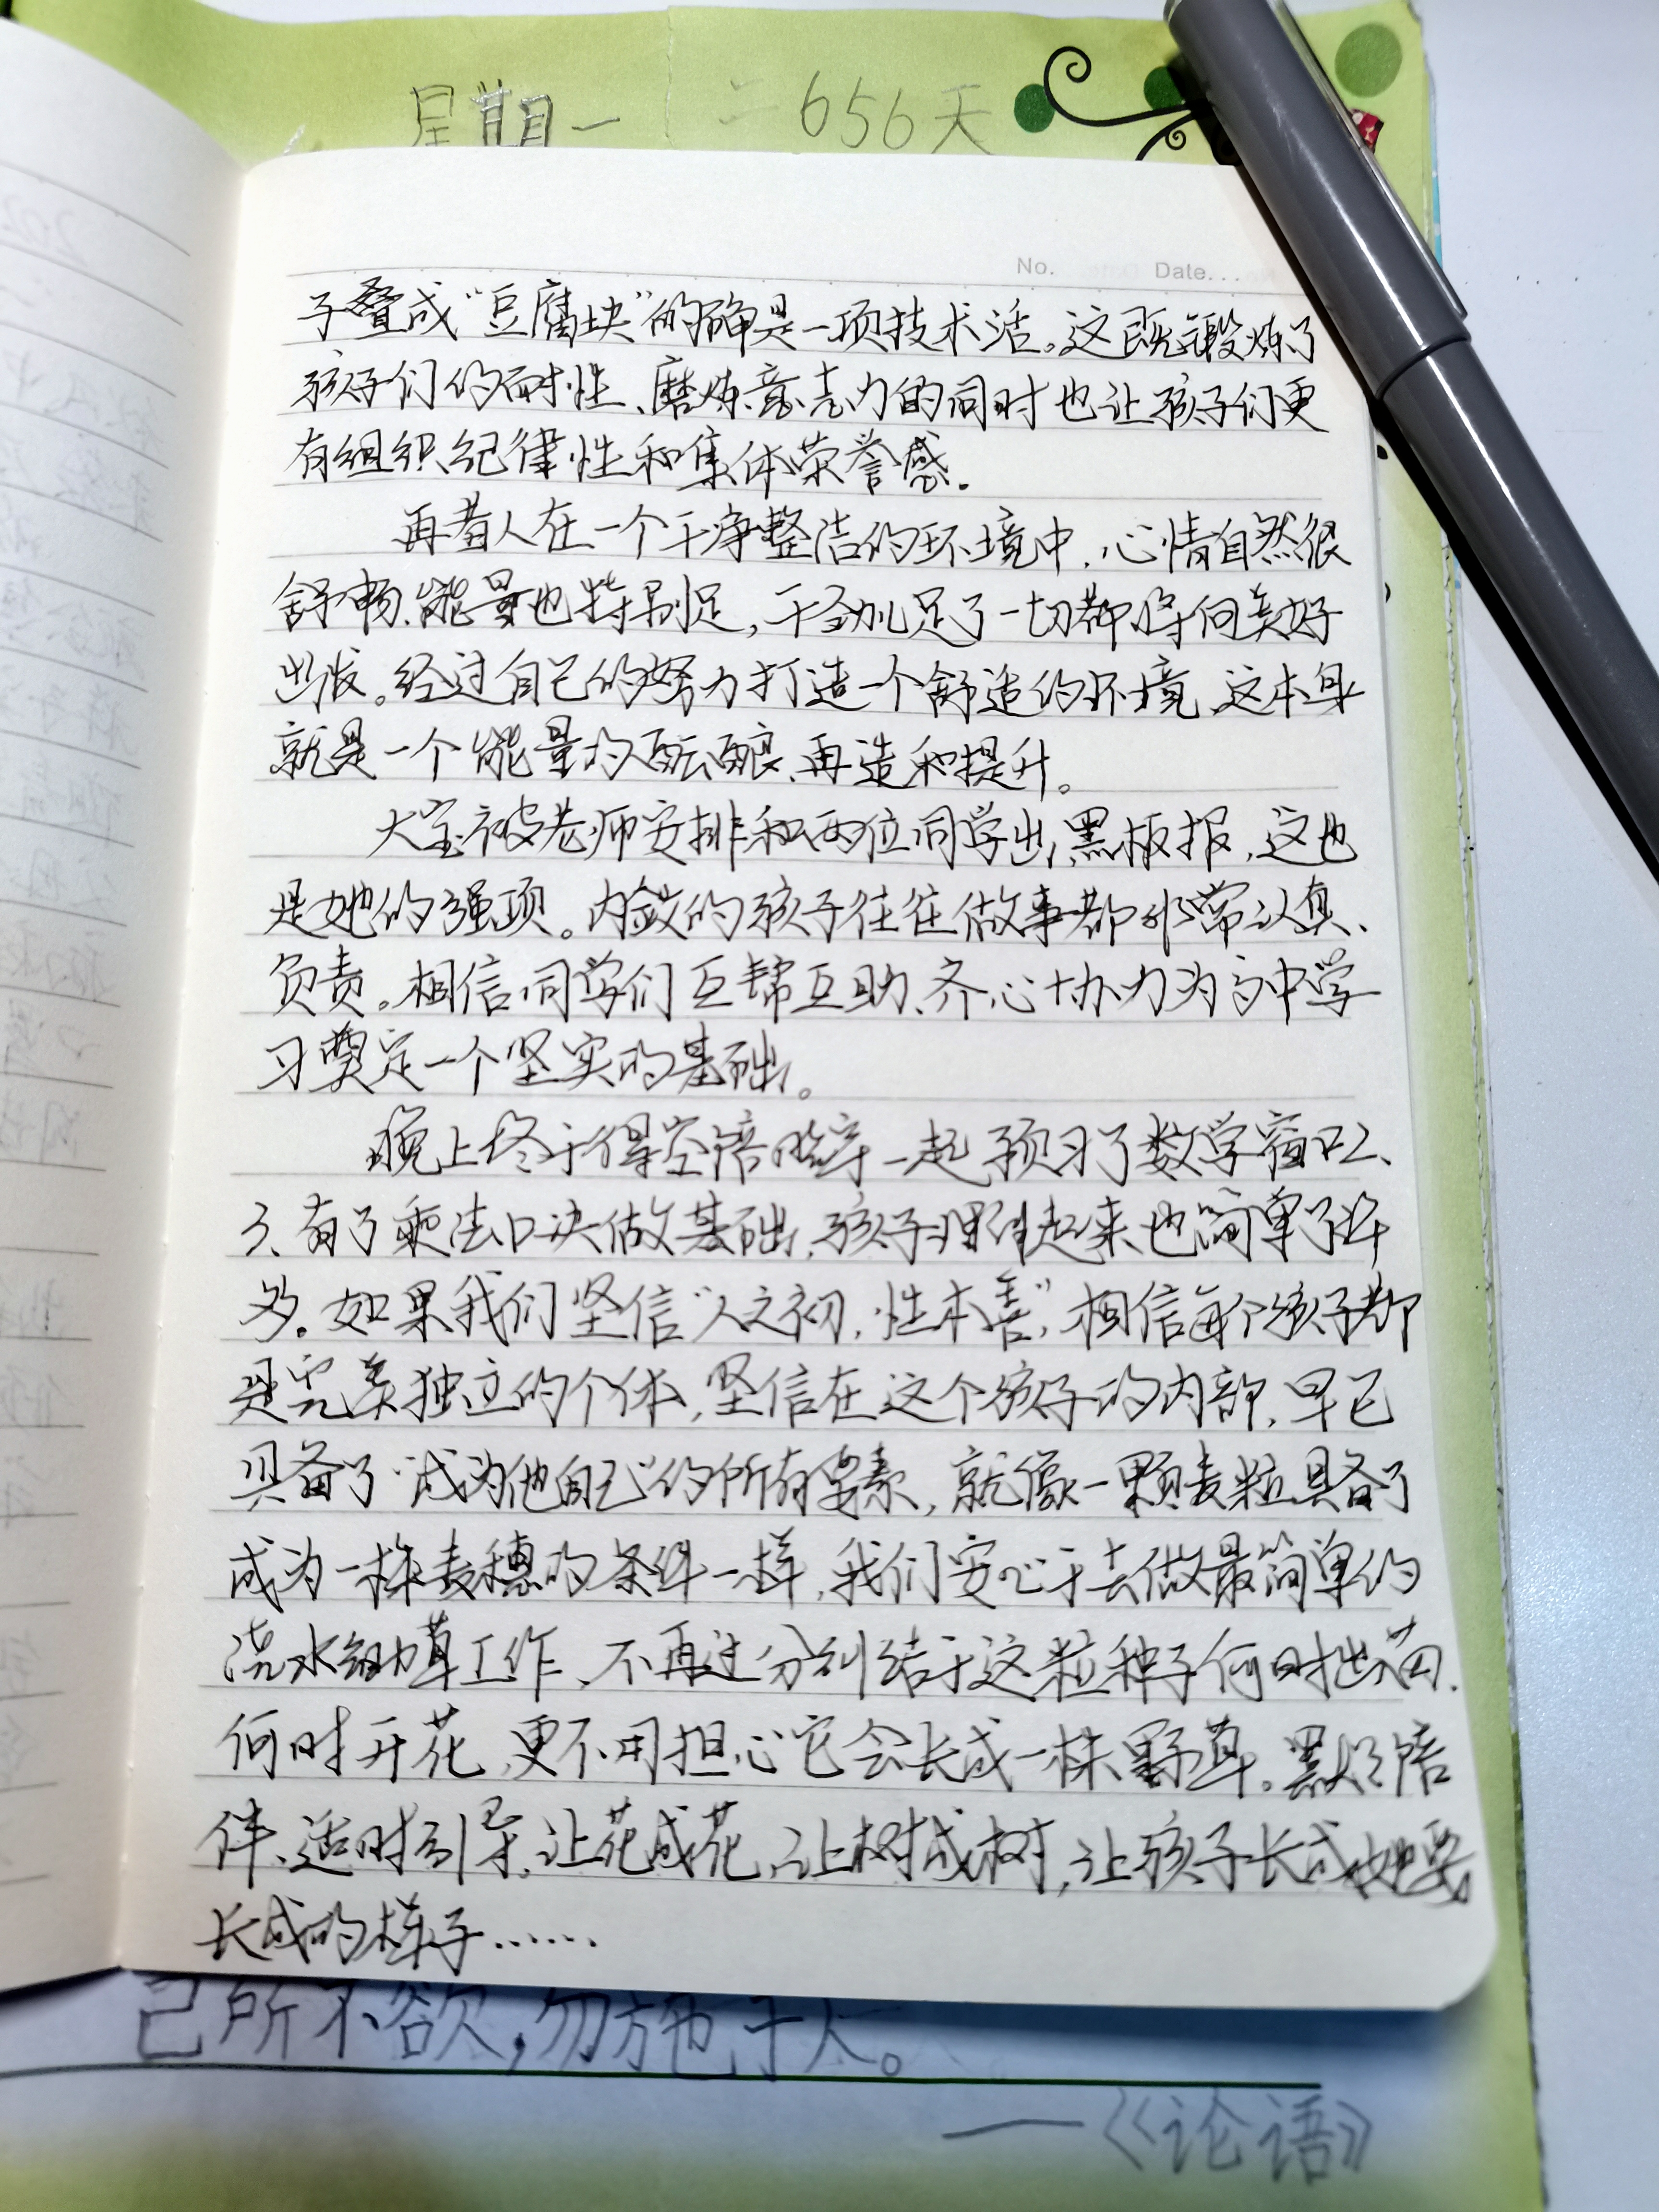 星期一 656天
No. Date...
子叠成“豆腐块”的确是一项技术活。这既锻炼了
孩子们的耐性、磨炼意志力的同时也让孩子们更
有组织纪律性和集体荣誉感.
再者人在一个干净整洁的环境中,心情自然很
舒畅、能量也特别足,干劲儿足了一切都将向美好
出发。经过自己的努力打造一个舒适的环境,这本身
就是一个能量的酝酿、再造和提升。
大宝被老师安排和两位同学出黑板报,这也
是她的强项。内敛的孩子往往做事都非常认真、
负责。相信同学们互帮互助、齐心协力为高中学
习奠定一个坚实的基础。
晚上终于得空陪 一起预习了数学窗口2、
3、有了乘法口决做基础,孩子理解起来也简单了许
多。如果我们坚信“人之初,性本善”,相信每个孩子都
是完美独立的个体,坚信在这个孩子的内部,早已
具备了“成为他自己”的所有要素,就像一颗麦粒具备了
成为一株麦穗的条件一样,我们安心于去做最简单的
浇水锄草工作、不再过分纠结于这粒种子何时出苗.
何时开花,更不用担心它会长成一株野草。默默陪
伴、适时引导,让花成花,让树成树,让孩子长成她要
长成的样子……
己所不欲,勿施于人。
——《论语》